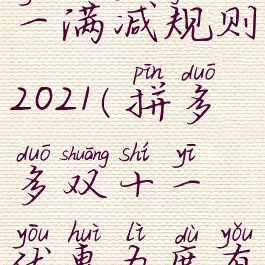 一满减规则
pīn duō
2021(拼多
duō shuāng shí yī
多双十一
yōu huì lì dù yǒu
优惠力度有